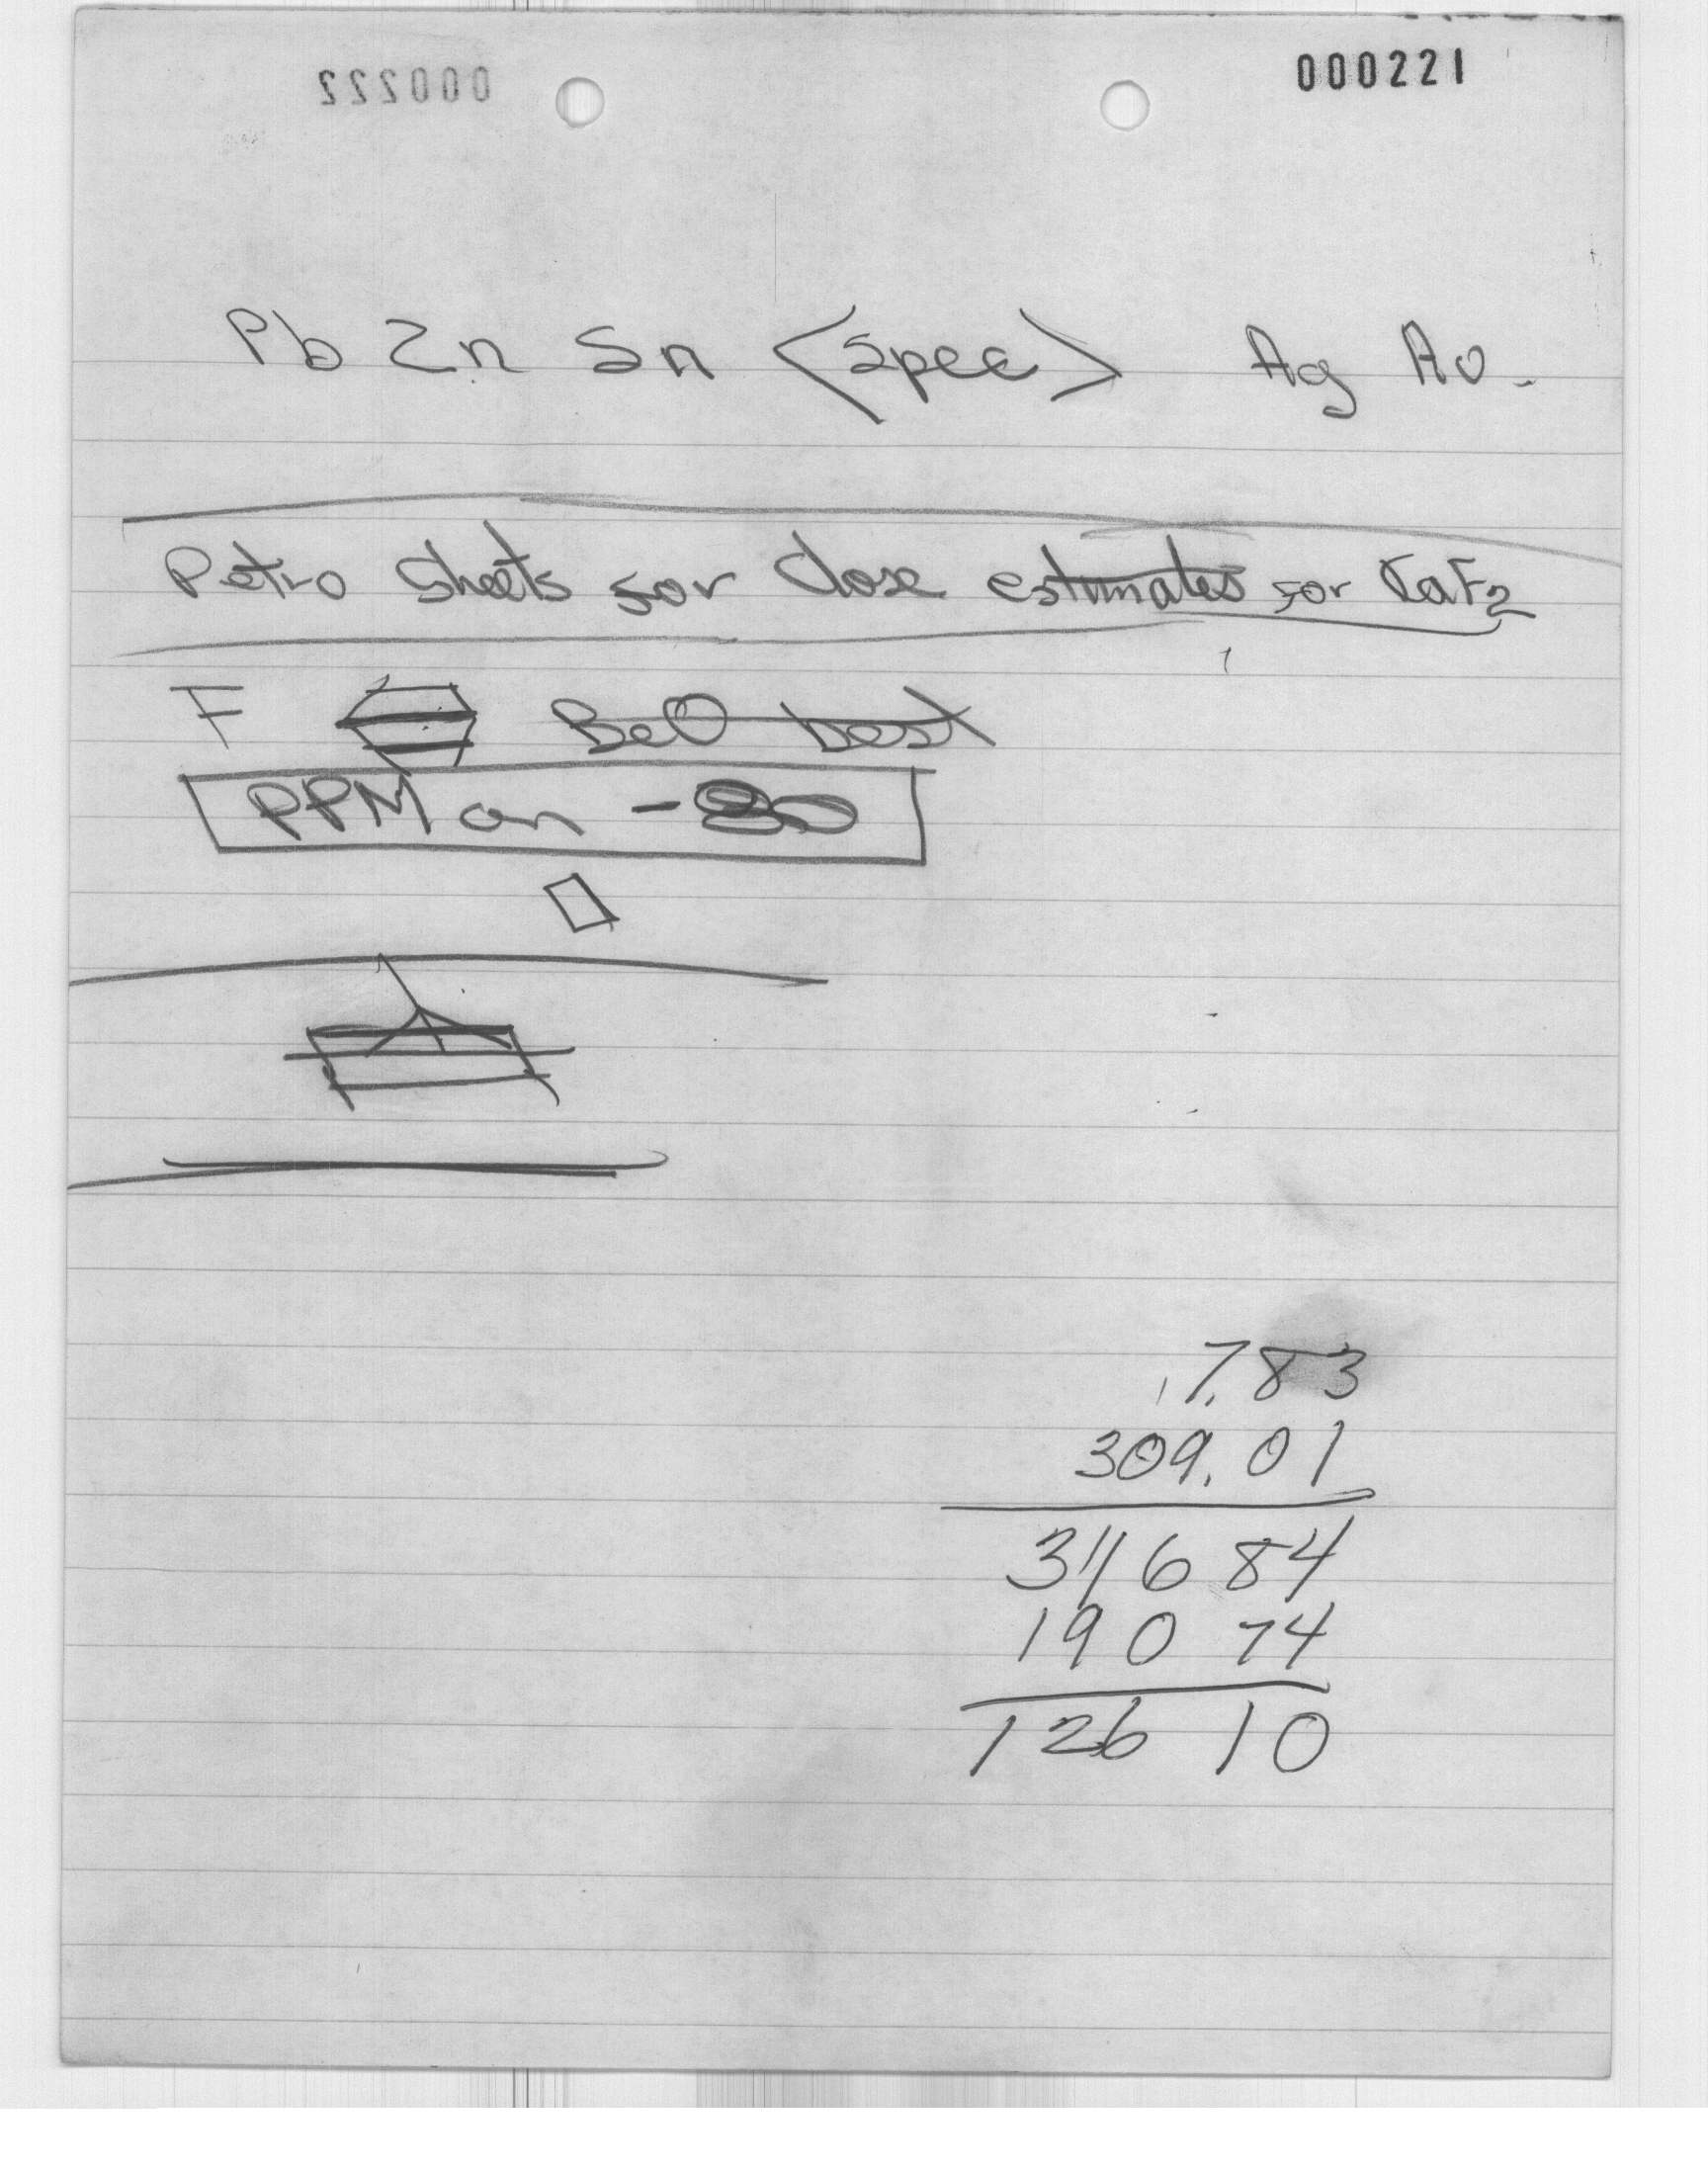 000222 000221
Pb Zn Sn <Spec> Ag Au.
Petro Sheets for Close estimates for CaF2
F BeO best
PPM on -80
7.83
309.01
311 6 84
190 74
126 10